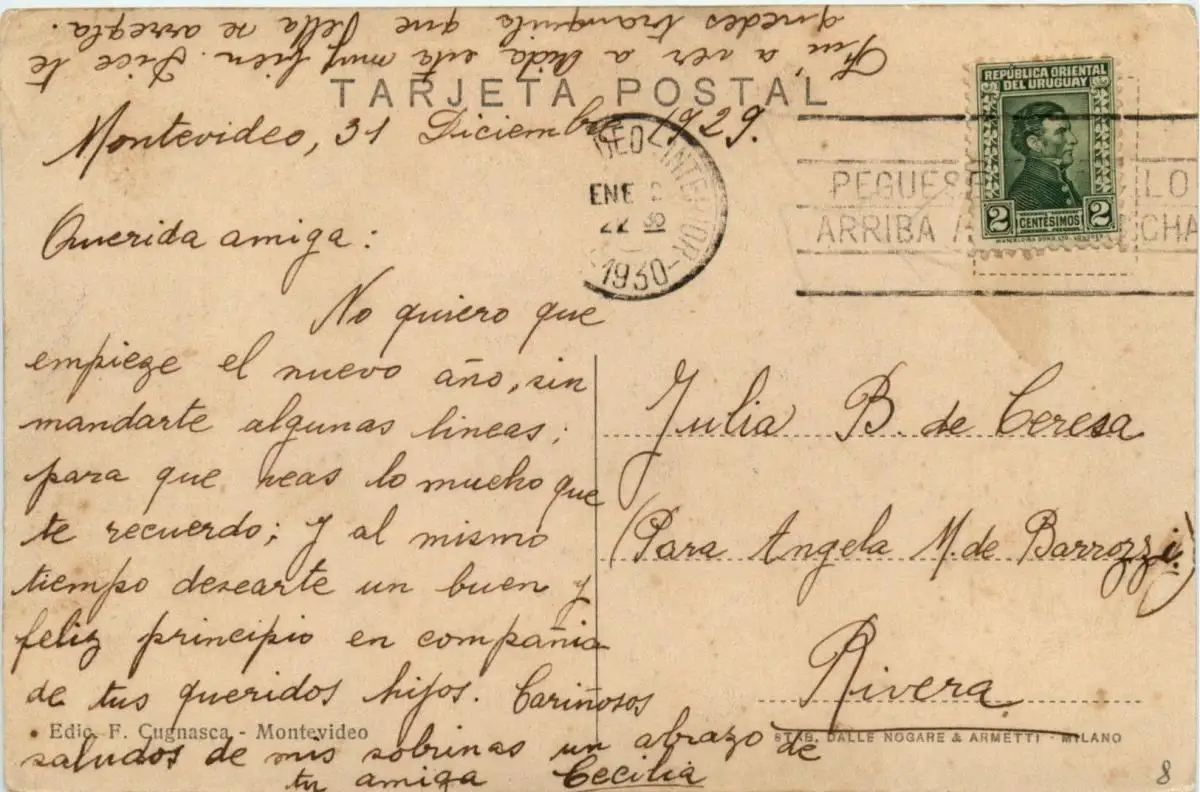 TARJETA POSTAL
Montevideo, 31 Diciembre 1929.
Querida amiga:
No quiero que
empieze el nuevo año, sin
mandarte algunas lineas;
para que veas lo mucho que
te recuerdo; y al mismo
tiempo desearte un buen y
feliz principio en compañia
de tus queridos hijos. Cariñosos
saludos de mis sobrinas un abrazo de
tu amiga Cecilia
Fui a ver a esta muy bien. Dice te
quedes tranquila que se arregla.
REPÚBLICA ORIENTAL
DEL URUGUAY
2 CENTÉSIMOS 2
DEO-INTERIOR
ENE 2
22
1930
PEGUESE LO
ARRIBA A CHA
Julia B. de Ceresa
(Para Angela M. de Barrozzi)
Rivera
Edic. F. Cugnasca - Montevideo
STAB. DALLE NOGARE & ARMETTI - MILANO
8